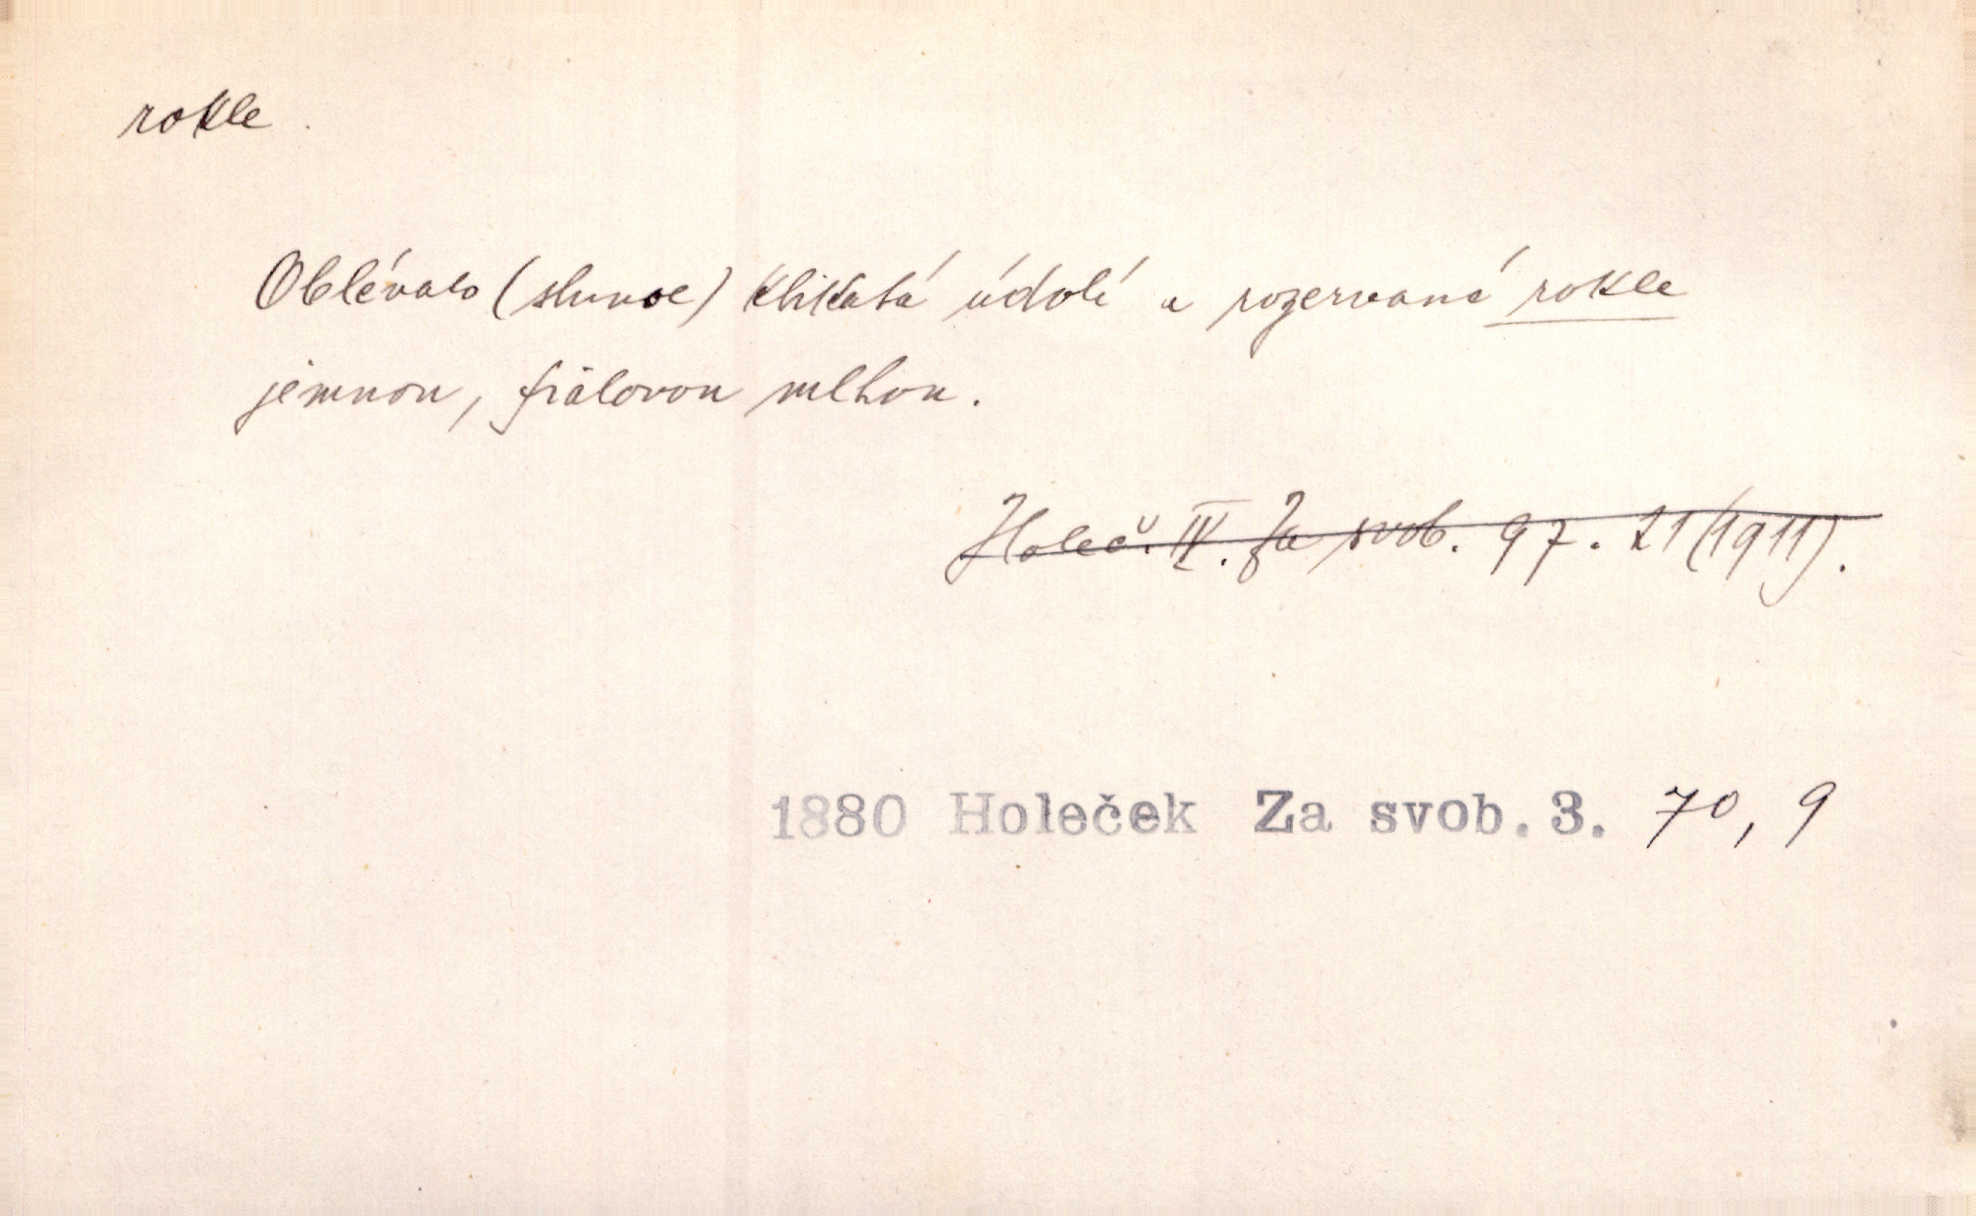 rokle.
Oblévalo (slunce) klikatá údolí a rozervané rokle
jemnou, fialovou mlhou.
Holeč. IV. Za svob. 97. 21 (1911).
1880 Holeček Za svob. 3. 70, 9